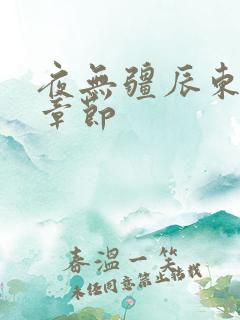 夜無疆辰東
章節
春溫一笑
未经同意禁止转载